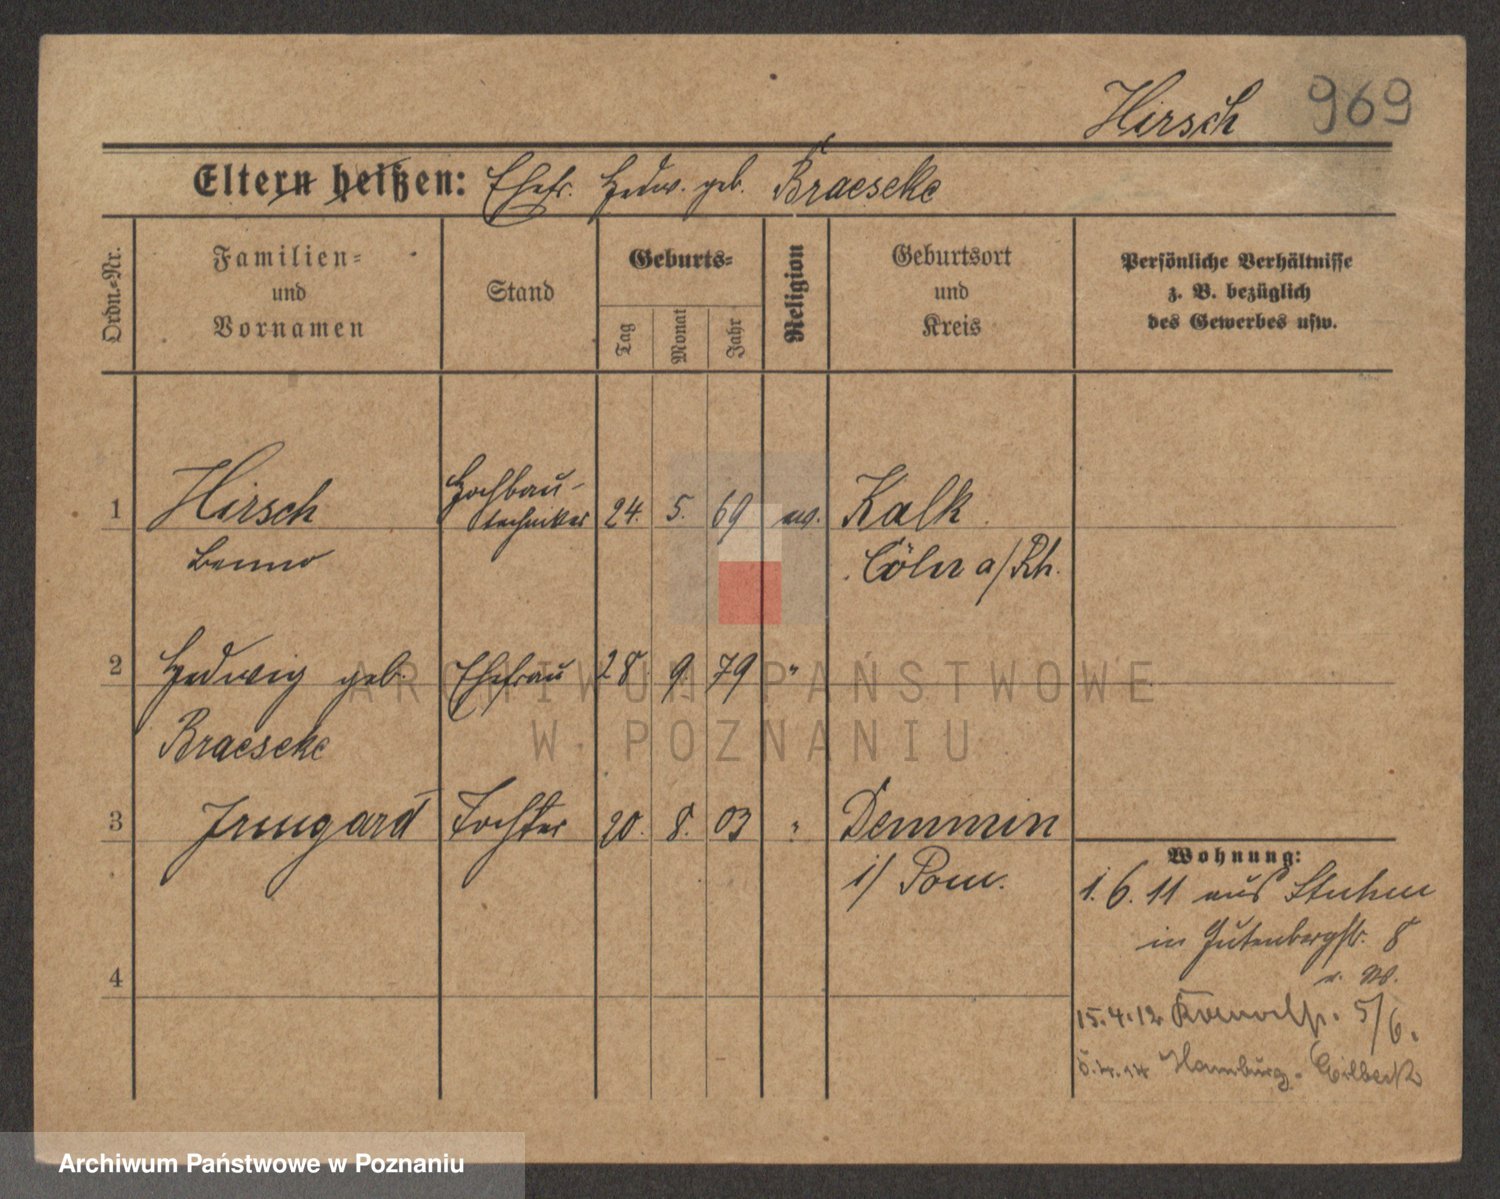 Hirsch 969
Eltern heißen: Ehefr. Hedw. geb. Braeseke
Ordn.-Nr.
Familien-
und
Vornamen
Stand
Geburts-
Tag
Monat
Jahr
Religion
Geburtsort
und
Kreis
Persönliche Verhältnisse
z. B. bezüglich
des Gewerbes usw.
1 Hirsch Hochbau-
techniker 24. 5. 69 ev. Kalk
Benno Cöln a/Rh.
2 Hedwig geb. Ehefrau 28. 9. 79 "
Braeseke
3 Irmgard Tochter 20. 8. 03 " Demmin
i/ Pom.
Wohnung:
1. 6. 11 aus Stuhm
in Gutenbergstr. 8
4
15.4.12 5/6.
5.4.14 Hamburg-Eilbeck
ARCHIWUM PAŃSTWOWE
W POZNANIU
Archiwum Państwowe w Poznaniu